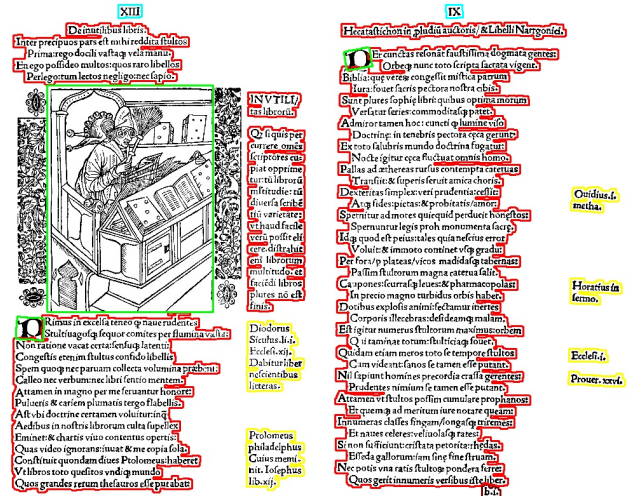 XIII
De inutilibus libris.
Inter precipuos pars est mihi reddita stultos
Prima: rego docili vastaq; vela manu.
En ego possideo multos: quos raro libellos
Perlego: tum lectos negligo: nec sapio.
INVTILI/
tas librorū.
Qz si quis per
currere omēs
scriptores cu
piat opprime
tur: tū librorū
diuersa scribē
tiū varietate:
vt haud facile
verū possit eli
cere. distrahit
eni librorum
multitudo. et
faciēdi libros
plures nō est
finis.
Primus in excelsa teneo q̃ naue rudentes
Stultiuagosq; sequor comites per flumina vasta:
Non ratione vacat certa: sensuq; latenti:
Congestis etenim stultus confido libellis
Spem quoq; nec paruam collecta volumina præbent:
Calleo nec verbum: nec libri sentio mentem.
Attamen in magno per me seruantur honore:
Pulueris & cariem plumatis tergo flabellis.
Ast vbi doctrine certamen voluitur: inq;
Aedibus in nostris librorum culta supellex
Eminet: & chartis viuo contentus opertis:
Quas video ignorans: iuuat & me copia sola.
Constituit quondam diues Ptolomeus: haberet
Vt libros toto quesitos vndiq; mundo
Quos grandes rerum thesauros esse putabat:
Diodorus
Siculus. li. i.
Eccles. xij.
Dabitur liber
nescientibus
litteras.
Ptolomeus
philadelphus
Cuius memi-
nit. Iosephus
lib. xij.
IX
Hecatastichon in pludiū auctoris/ & Libelli Narrgoniei.
Per cunctas resonāt faustissima dogmata gentes:
Orbeq; nunc toto scripta sacrata vigent.
Biblia: que veteres congessit mistica patrum
Iura: fouet sacris pectora nostra cibis.
Sunt plures sophie libri: quibus optima morum
Versatur series: commoditasq; patet.
Admiror tamen hoc: cuncti q̃ lumine viso
Doctrine: in tenebris pectora ceca gerunt:
Ex toto salubris mundo doctrina fugatur:
Nocte igitur ceca fluctuat omnis homo.
Pallas ad æthereas rursus contempta cateruas
Transiit: & superis seruit amica choris.
Dexteritas simplex: veri prudentia: cessit:
Atq; fides: pietas: & probitatis/ amor:
Spernitur ad mores quicquid perducit honestos:
Spernuntur legis proh monumenta sacre.
Idq; quod est peius: tales quia nescius error
Voluit: & immoto continet vsq; gradu:
Per fora/ p plateas/ vicos madidasq; tabernas:
Passim stultorum magna caterua salit.
Caupones: scurras q̃ leues: & pharmacopolas
In precio magno turbidus orbis habet.
Dotibus explosis animi sectantur inertes
Corporis illecebras: desideamq; malam.
Est igitur numerus stultorum maximus: orbem
Qui taminat totum: stulticiaq; fouet.
Quidam etiam meros toto se tempore stultos
Cum videant: sanos se tamen esse putant.
Nil sapiunt homines precordia crassa gerentes:
Prudentes nimium se tamen esse putant.
Attamen vt stultos possim cumulare prophanos:
Et quemq; ad meritum iure notare queam:
Innumeras classes fingam/ longasq; triremes:
Et naues celeres: veliuolasq; rates:
Si non sufficiunt: cristata petorita: rhedas.
Esseda gallorum: iam sine fine struam.
Nec potis vna ratis stultosq; pondera ferre:
Quos gerit innumeris versibus iste liber.
b.i.
Ouidius. i.
metha.
Horatius in
sermo.
Eccles. i.
Prouer. xxvi.